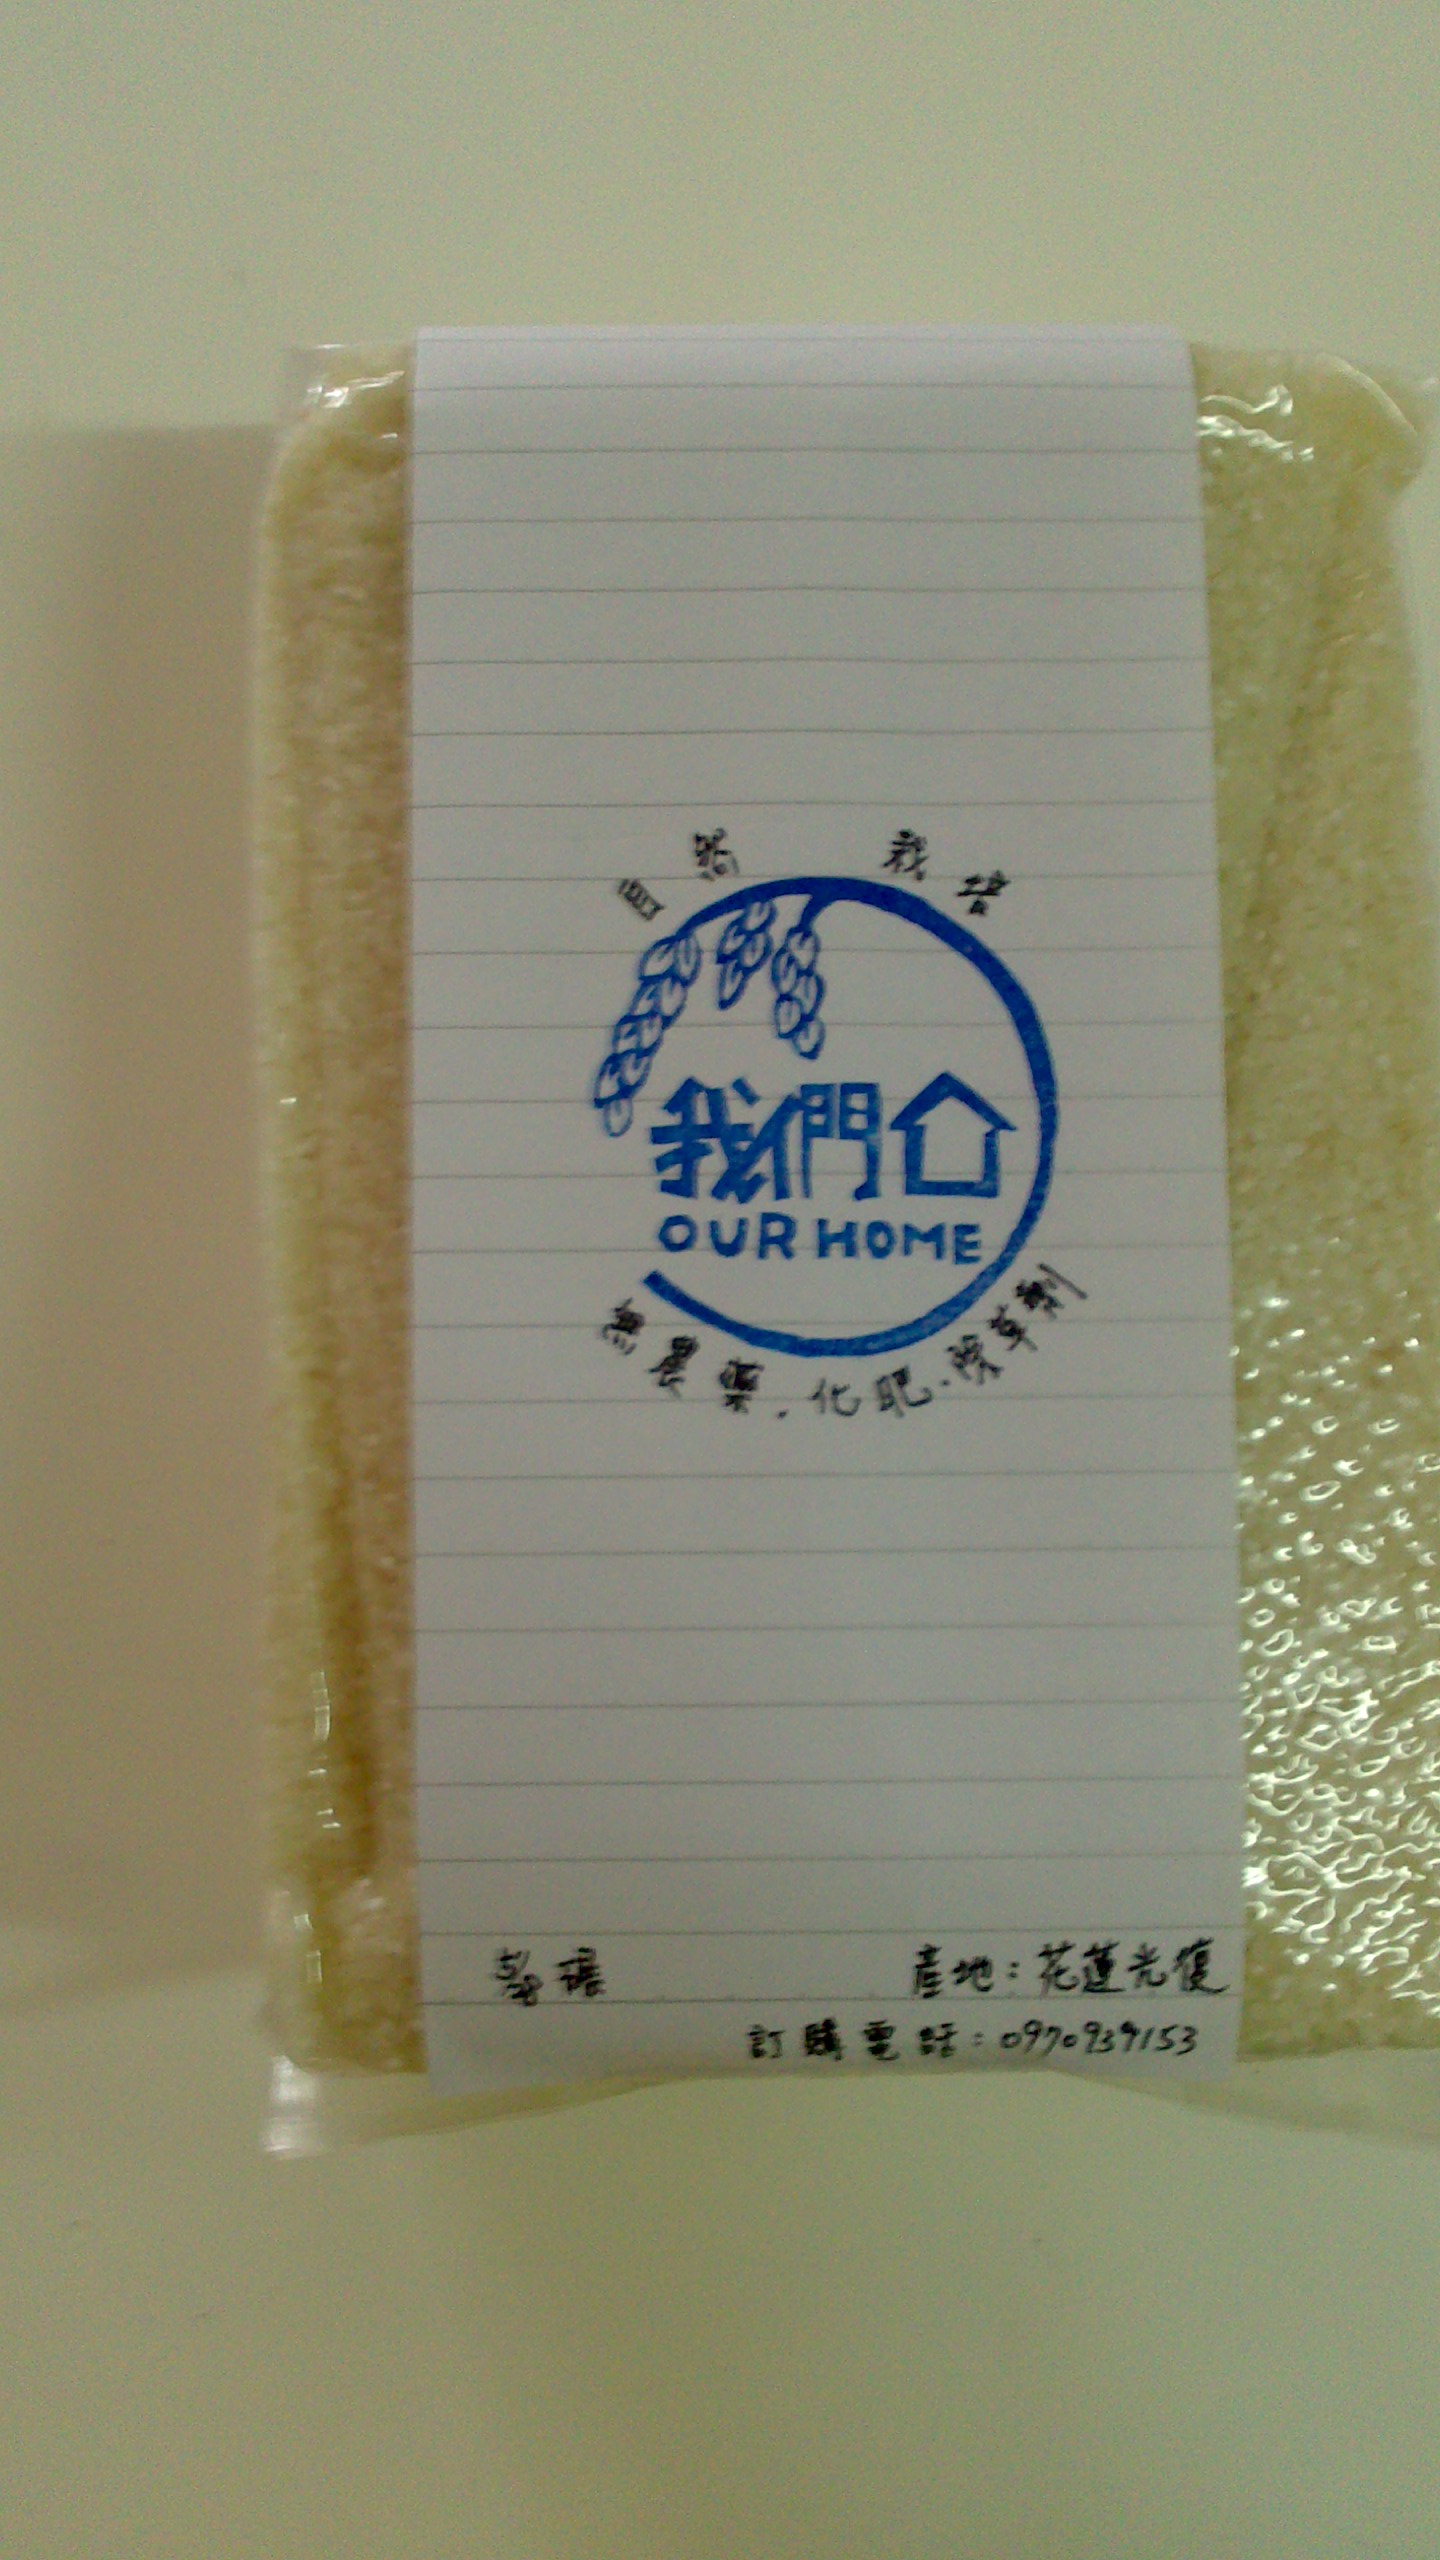 自然 栽培
我們
OUR HOME
無農藥．化肥．除草劑
產地：花蓮光復
訂購電話：0970939153